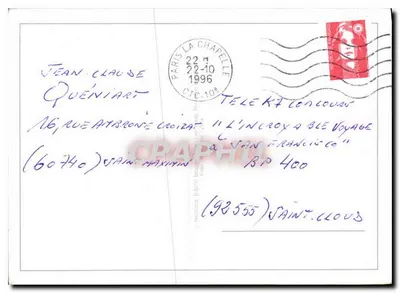 PARIS LA CHAPELLE
22-10
1996
JEAN-CLAUDE
QUÉNIART
16, RUE AMBROISE CROIZAT
(60740) SAINT MAXIMIN
TELE K7 CONCOURS
"L'INCROYABLE VOYAGE
À SAN FRANCISCO"
BP 400
(92555) SAINT. CLOUD